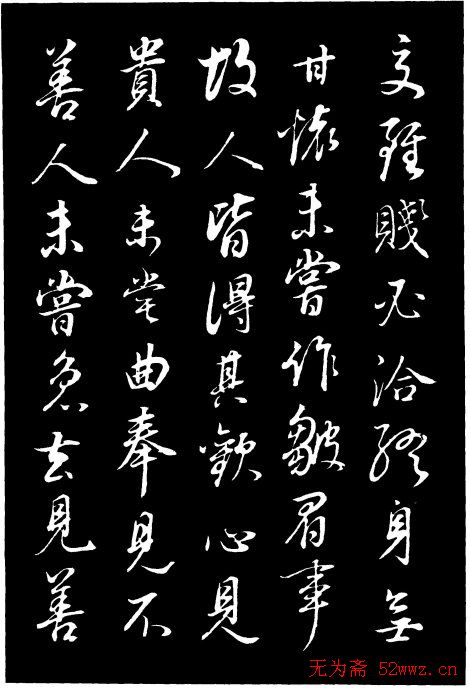 交雖賤必洽終身無
甘懷未嘗作皺眉事
故人皆得其歡心見
貴人未嘗曲奉見不
善人未嘗急去見善
无为斋 52wwz.cn